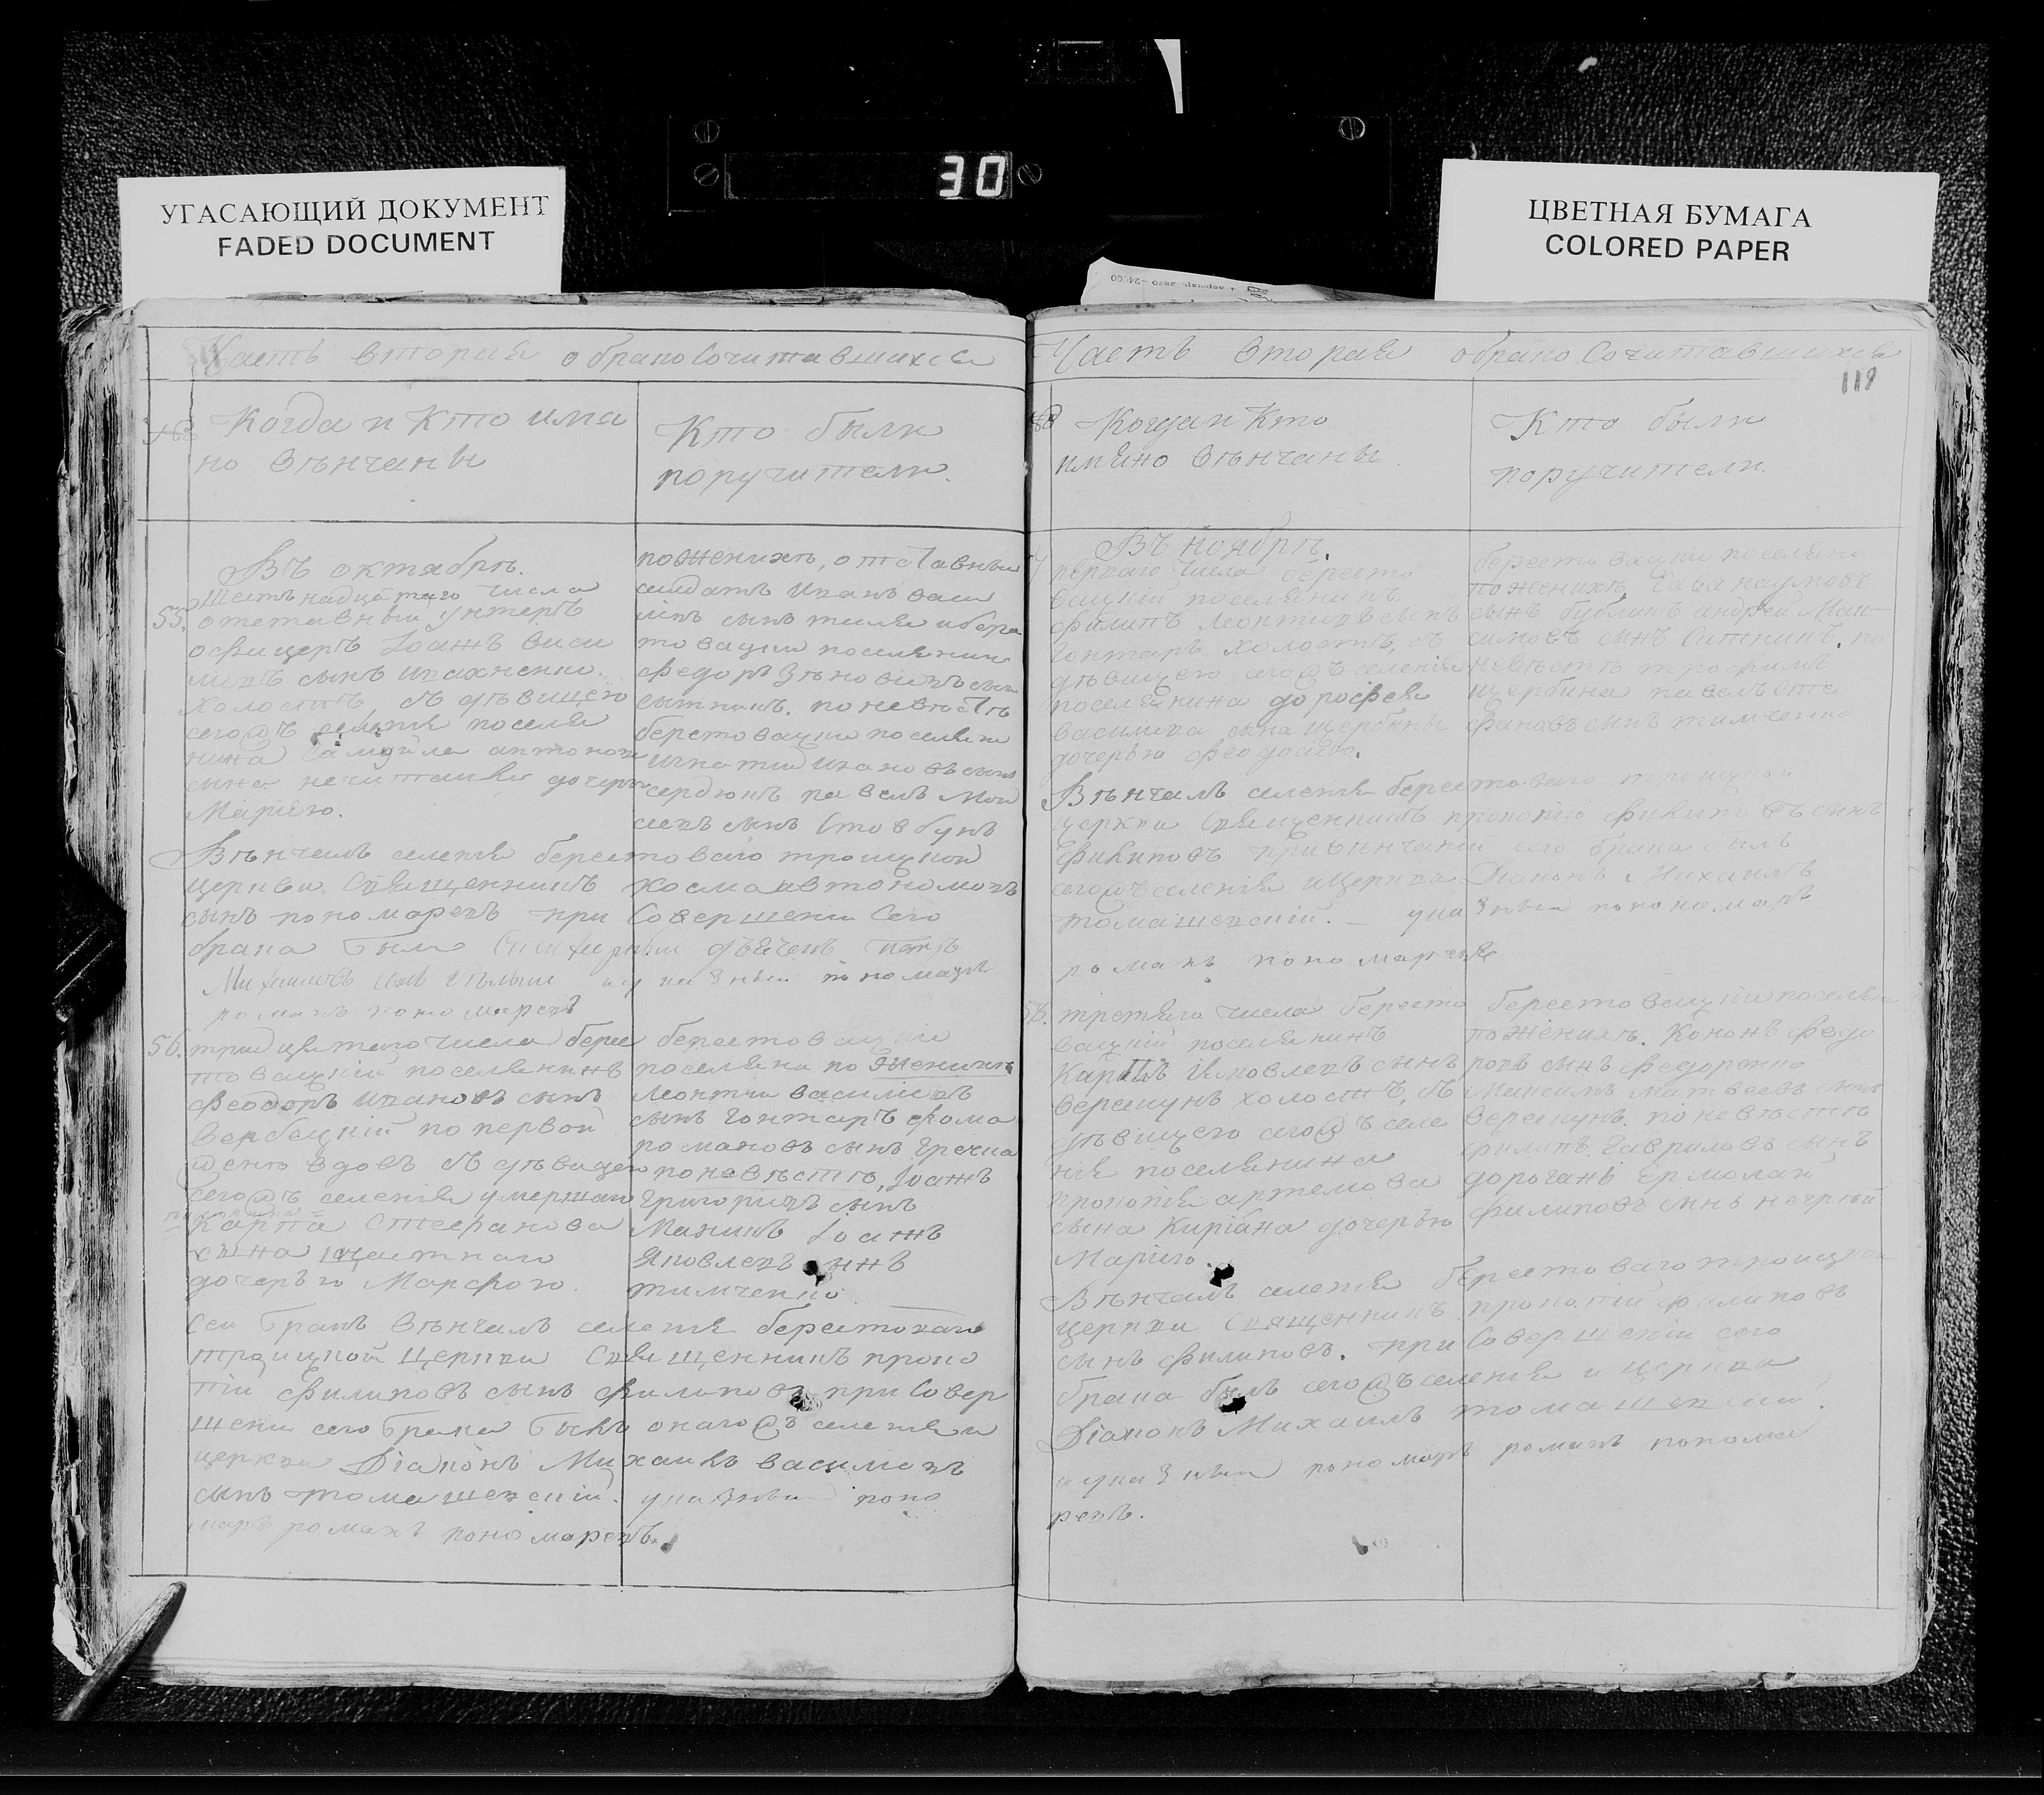 30
УГАСАЮЩИЙ ДОКУМЕНТ
FADED DOCUMENT
ЦВЕТНАЯ БУМАГА
COLORED PAPER
Часть вторая о бракосочитавшихся
Когда и кто имя
но венчаны
Кто были
поручители.
Въ октябрѣ.
шестьнадцетаго числа
55. отставный унтеръ
офицеръ Іоанъ васи
лиевъ сынъ
холостъ, съ дѣвицею
сего@ъ селенія поселя
нина Самойла
сына дочерью
Маріею.
поженихѣ, отставный
салдатъ Иванъ васи
товацкий поселянин
федоръ
по невѣстѣ
берестовацкие поселяни
игнатий ивановъ сынъ
сердюкъ павелъ
сынъ Стовбунъ
Вѣнчалъ селенія берестоваго троицкой
церкви Священникъ косма автономовъ
сынъ пономаревъ при Совершени Сего
брака были Стихарный дьячекъ
Михаиловъ Сынъ указный пономарь
романъ пономаревъ
56. тридцетаго числа берес
товацкий поселянинъ
Феодоръ ивановъ сынъ
вербецкий по первой
женѣ вдовъ съ дѣвицею
сего@ъ селенія умершаго
Карпа Стефанова
сына
дочерью Марфою.
берестовацкие
поселяни по женихѣ
Леонтий василиевъ
сынъ гонтаръ фома
романовъ сынъ гречка
по невѣстѣ, Іоанъ
григориевъ сынъ
Манинъ Іоанъ
Яковлевъ сынъ
тимченко
Сей бракъ вѣнчалъ селенія берестоваго
троицкой церкви Священникъ проко
пій филиповъ сынъ филиповъ при Совер
шени сего брака былъ онаго@ъ селенія и
церкви Діаконъ Михаилъ василиевъ
сынъ томашевский. указный поно
марь романъ пономаревъ.
Часть вторая о бракосочитавшихся
119
Когда и кто
имяно вѣнчаны
Кто были
поручители.
Въ ноябрѣ.
перваго числа бересто
вацкий поселянинъ
филипъ леонтиевъ сынъ
Гонтаръ холостъ, съ
дѣвицею сего@ъ селенія
поселянина дорофея
василиева сына щербины
дочерью феодосіею.
берестовацкие поселяни
поженихѣ Сава наумовъ
сынъ бубликъ андрей Мак
симовъ сынъ Ситникъ. по
невѣстѣ трофимъ
щербина павелъ сте
фановъ сынъ тимченко
Вѣнчалъ селенія берестоваго троицкой
церкви Священникъ прокопій филиповъ сынъ
филиповъ при вѣнчаний сего брака былъ
сего@ъ селенія и церкви Діаконъ Михаилъ
томашевский. — указный пономарь
романъ пономаревъ
58. третяго числа бересто
вацкий поселянинъ
Карпъ Яковлевъ сынъ
верещунъ холостъ, съ
дѣвицею сего@ъ селе
нія поселянина
прокопія артемова
сына Киріяна дочерью
Маріею.
берестовацкие поселяни
поженихѣ. Кононъ федо
ровъ сынъ федоренко
Максимъ матвеевъ сынъ
верещунъ. по невѣстѣ
филипъ гавриловъ сынъ
дороганъ Ермолай
филиповъ сынъ
Вѣнчалъ селенія берестоваго троицкой
церкви Священникъ прокопій филиповъ
сынъ филиповъ. при Совершеніи сего
брака былъ сего@ъ селенія и церкви
Діаконъ Михаилъ томашевский.
и указный пономарь романъ понома
ревъ.